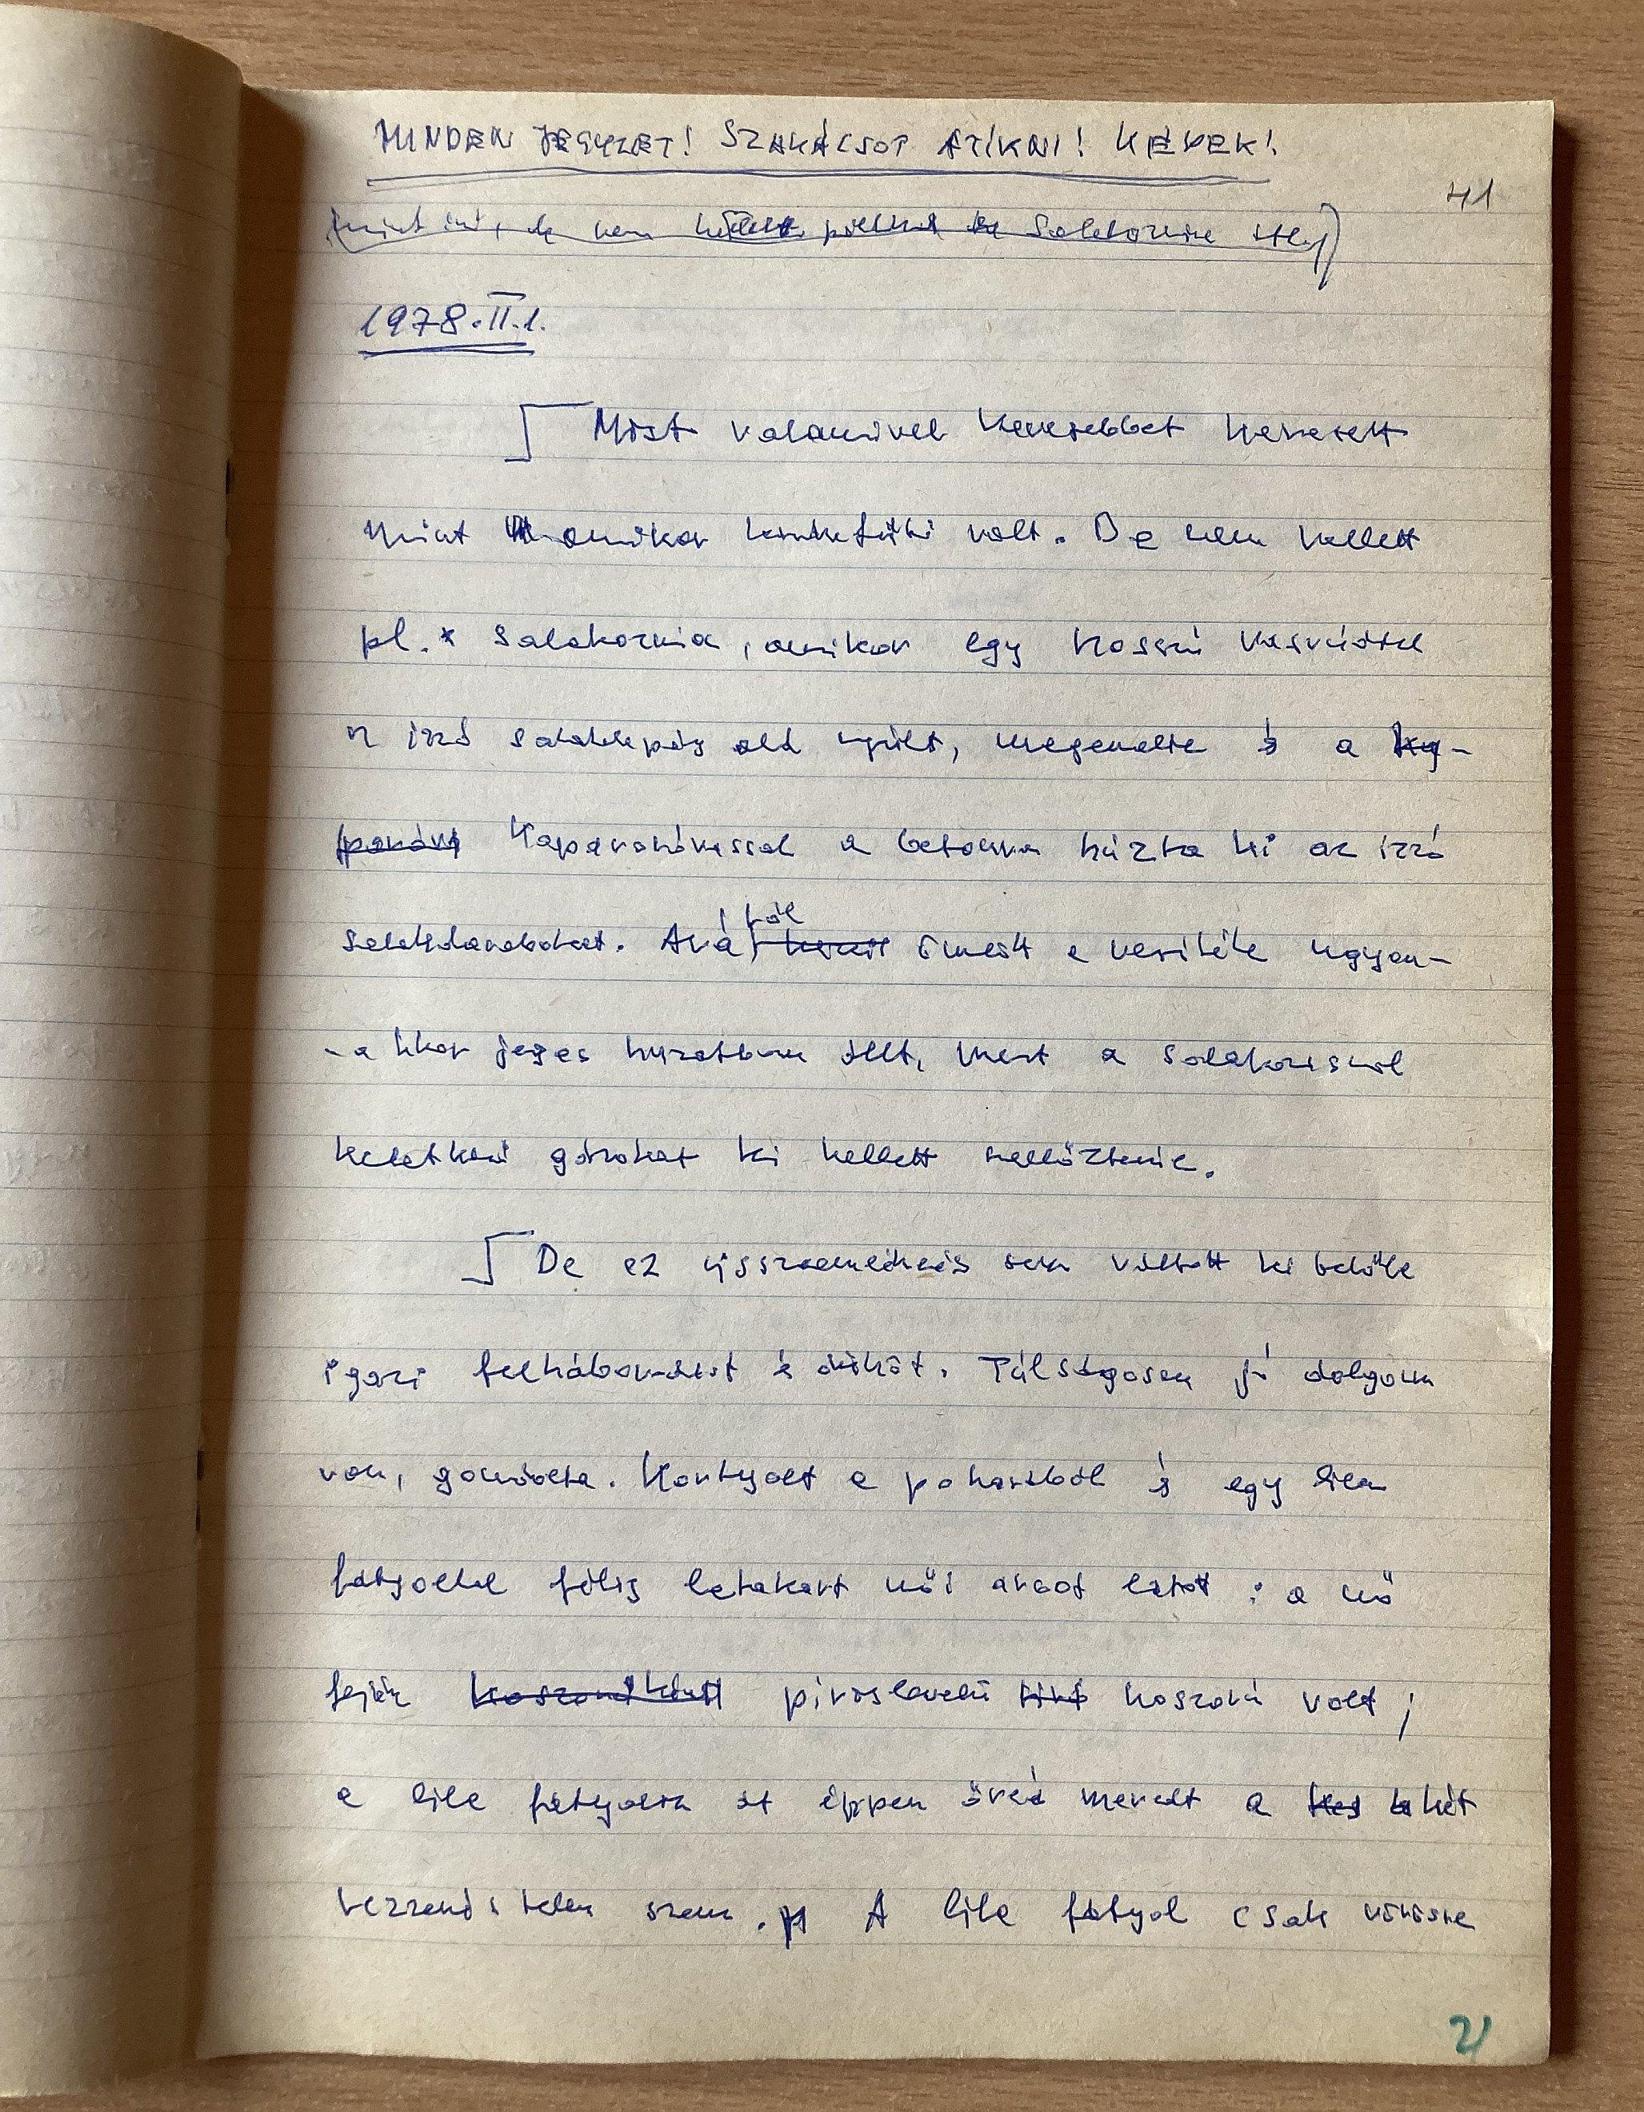 MINDEN JEGYZET! SZAKÁCSOT ÁTÍRNI! KÉPEK!
41
mint író, de nem kellett például salakoznia
1978. II. 1.
Most valamivel kevesebbet keresett
mint amikor kazánfűtő volt. De nem kellett
pl. salakoznia, amikor egy hosszú vasrúddal
az izzó salakréteg alá nyúlt, megemelte és a
kaparóvassal a betonra húzta ki az izzó
salakdarabokat. Arcáról ömlött a veríték ugyan-
-akkor jeges huzatban állt, mert a salakozásnál
keletkező gázokat ki kellett szellőztetnie.
De ez visszaemlékezés sem váltott ki belőle
igazi felháborodást és dühöt. Túlságosan jó dolgom
van, gondolta. Kortyolt a pohárból és egy lila
fátyollal félig letakart női arcot látott: a nő
fején piroslevelű koszorú volt;
a lila fátyolon át éppen őreá meredt a két
rezzenéstelen szem. A lila fátyol csak
21